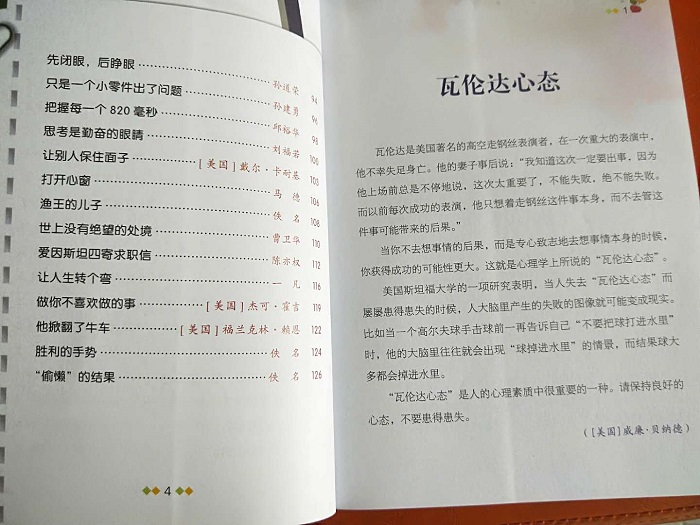 先闭眼，后睁眼 孙道荣 94
只是一个小零件出了问题 孙建勇 96
把握每一个820毫秒 邱裕华 98
思考是勤奋的眼睛 刘福若 100
让别人保住面子 [美国]戴尔·卡耐基 103
打开心窗 马德 106
渔王的儿子 佚名 108
世上没有绝望的处境 曹卫华 110
爱因斯坦四寄求职信 陈亦权 112
让人生转个弯 一凡 116
做你不喜欢做的事 [美国]杰可·霍吉 119
他掀翻了牛车 [美国]福兰克林·赖恩 122
胜利的手势 佚名 124
“偷懒”的结果 佚名 126
4
1
瓦伦达心态
瓦伦达是美国著名的高空走钢丝表演者，在一次重大的表演中，
他不幸失足身亡。他的妻子事后说：“我知道这次一定要出事，因为
他上场前总是不停地说，这次太重要了，不能失败，绝不能失败。
而以前每次成功的表演，他只想着走钢丝这件事本身，而不去管这
件事可能带来的后果。”
当你不去想事情的后果，而是专心致志地去想事情本身的时候，
你获得成功的可能性更大。这就是心理学上所说的“瓦伦达心态”。
美国斯坦福大学的一项研究表明，当人失去“瓦伦达心态”而
屡屡患得患失的时候，人大脑里产生的失败的图像就可能变成现实。
比如当一个高尔夫球手击球前一再告诉自己“不要把球打进水里”
时，他的大脑里往往就会出现“球掉进水里”的情景，而结果球大
多都会掉进水里。
“瓦伦达心态”是人的心理素质中很重要的一种。请保持良好的
心态，不要患得患失。
（[美国]威廉·贝纳德）